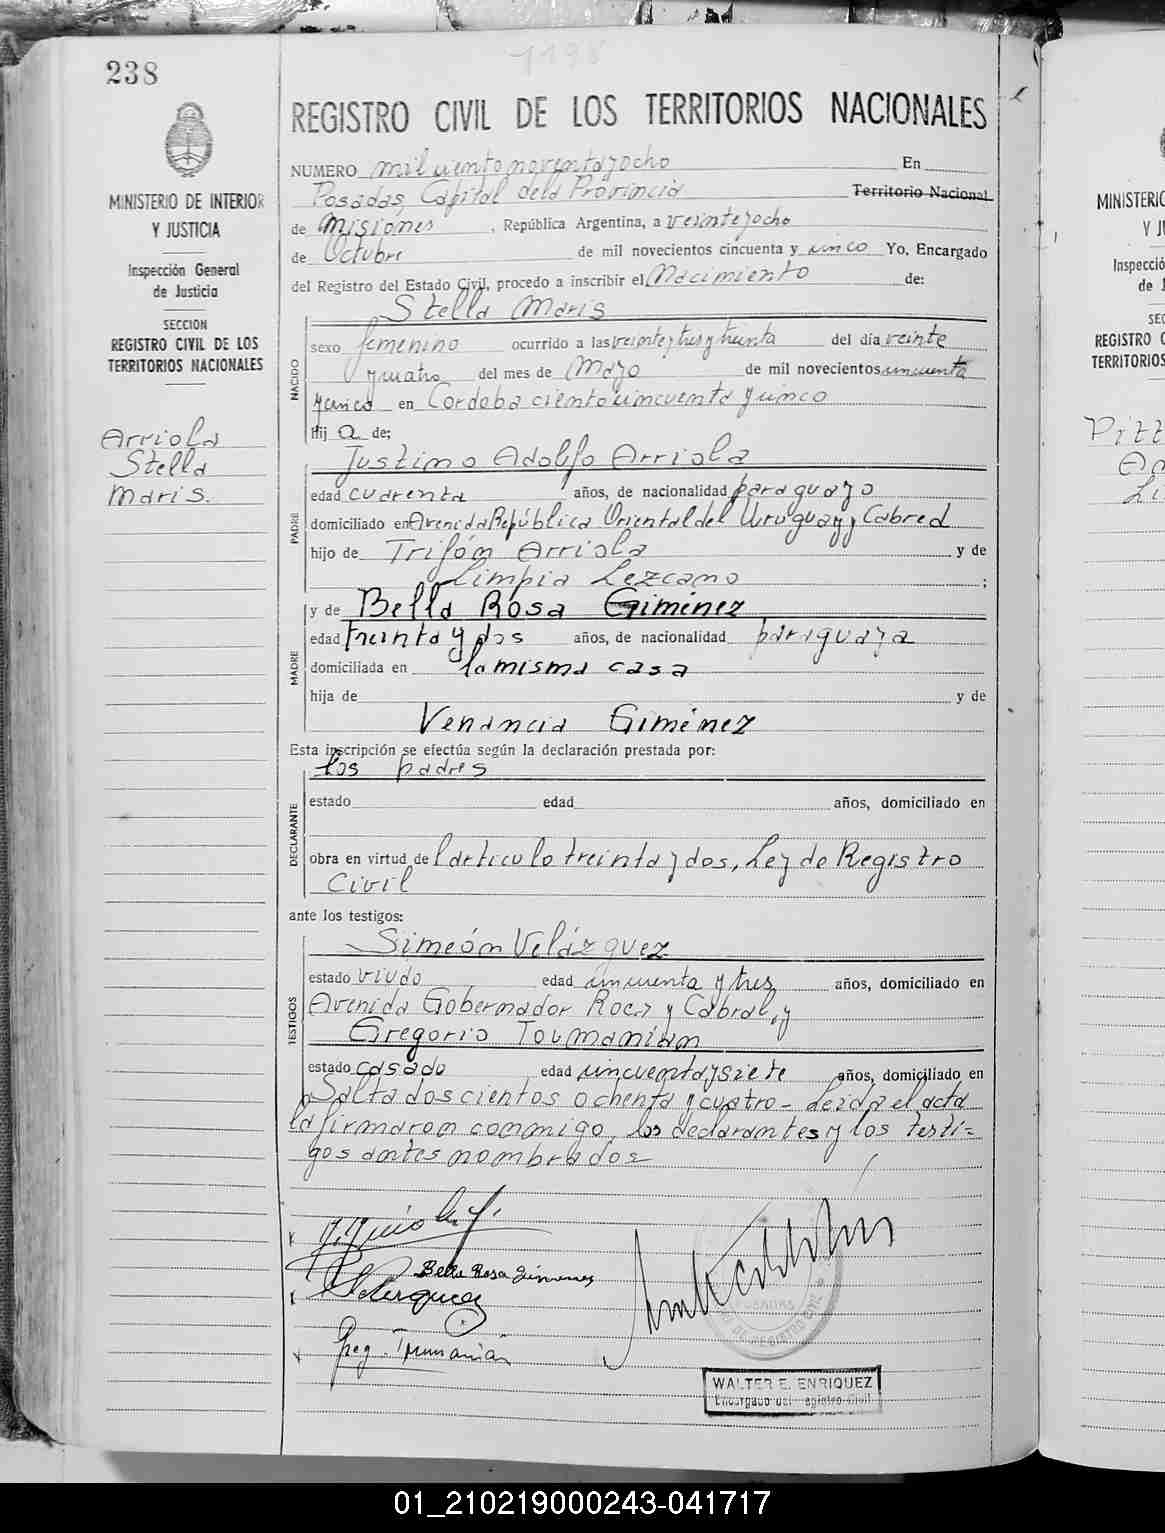 238
1198
REGISTRO CIVIL DE LOS TERRITORIOS NACIONALES
MINISTERIO DE INTERIOR
Y JUSTICIA
Inspección General
de Justicia
SECCION
REGISTRO CIVIL DE LOS
TERRITORIOS NACIONALES
Arriola
Stella
Maris.
NUMERO mil ciento noventa y ocho En
Posadas, Capital de la Provincia Territorio Nacional
de Misiones, República Argentina, a veinte y ocho
de Octubre de mil novecientos cincuenta y cinco Yo, Encargado
del Registro del Estado Civil, procedo a inscribir el Nacimiento de:
Stella Maris
NACIDO
sexo femenino ocurrido a las veinte y tres y treinta del día veinte
y cuatro del mes de Mayo de mil novecientos cincuenta
y cinco en Córdoba ciento cincuenta y cinco
hij a de:
Justino Adolfo Arriola
PADRE
edad cuarenta años, de nacionalidad paraguayo
domiciliado en Avenida República Oriental del Uruguay y Cabred
hijo de Trifón Arriola y de
Limpia Lezcano ;
y de Bella Rosa Giménez
MADRE
edad treinta y dos años, de nacionalidad paraguaya
domiciliada en la misma casa
hija de y de
Venancia Giménez
Esta inscripción se efectúa según la declaración prestada por:
los padres
DECLARANTE
estado edad años, domiciliado en
obra en virtud de l artículo treinta y dos, Ley de Registro
Civil
ante los testigos:
Simeón Velázquez
TESTIGOS
estado viudo edad cincuenta y tres años, domiciliado en
Avenida Gobernador Roca y Cabral, y
Gregorio Toumanian
estado casado edad cincuenta y siete años, domiciliado en
Salta doscientos ochenta y cuatro - Leída el acta
la firmaron conmigo, los declarantes y los testi=
gos antes nombrados
Bella Rosa Jimenez
Velazquez
Greg. Toumanian
POSADAS
DE REGISTRO CIVIL
WALTER E. ENRIQUEZ
Encargado del Registro Civil
MINISTERIO
Y JU
Inspecció
de J
SEC
REGISTRO C
TERRITORIOS
Pitt
An
Li
01_210219000243-041717